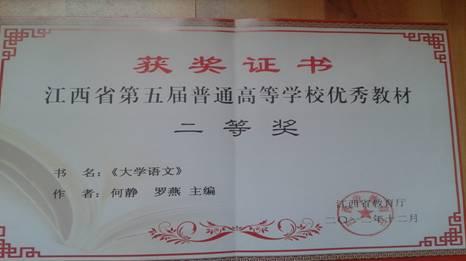 获奖证书
江西省第五届普通高等学校优秀教材
二等奖
书 名：《大学语文》
作 者：何静 罗燕 主编
江西省教育厅
二〇一二年十二月